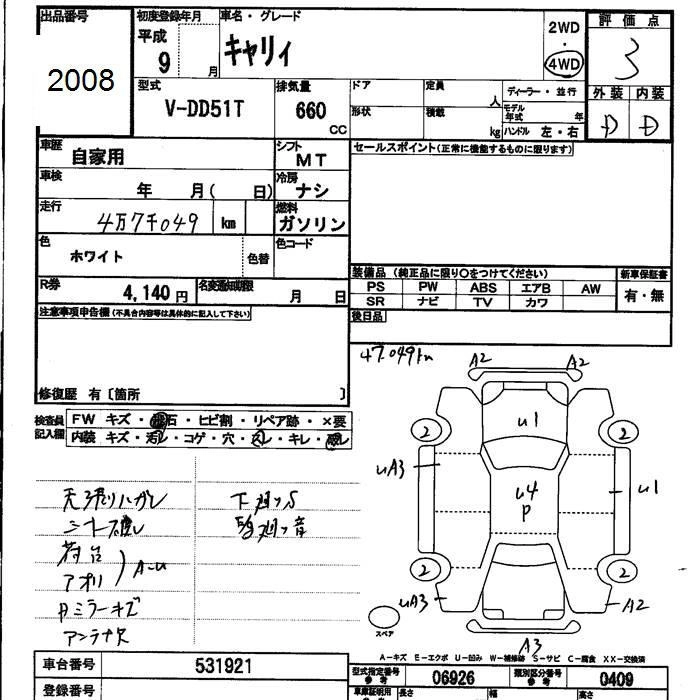 出品番号 初度登録年月 車名・グレード 評価点
2008 平成 9 月 キャリィ 2WD ・ 4WD 3
型式 排気量 ドア 定員 人 ディーラー・並行 外装 内装
V-DD51T 660 CC 形状 積載 kg モデル年式 年 D D
ハンドル 左・右
車歴 自家用 シフト MT セールスポイント(正常に機能するものに限ります)
車検 年 月( 日) 冷房 ナシ
走行 4万7千049 km 燃料 ガソリン
色 ホワイト 色替 色コード
装備品 (純正品に限り○をつけてください) 新車保証書
R券 4,140 円 名変通知期限 月 日 PS PW ABS エアB AW 有・無
SR ナビ TV カワ
注意事項申告欄(不具合内容等は具体的に記入して下さい) 後日品
47.049km
修復歴 有〔箇所 〕
検査員記入欄 FW キズ・飛石・ヒビ割・リペア跡・×要
内装 キズ・汚レ・コゲ・穴・スレ・キレ・
A2 A2
u1
2 2
uA3 u4 P u1
2 2
uA3 A2
A3
天張りハガレ 下廻りS
荷台
アオリ A-u
ミラーキズ
アンテナ欠
スペア
A-キズ E-エクボ U-凹み W-補修跡 S-サビ C-腐食 XX-交換済
車台番号 531921 型式指定番号 参考 06926 類別区分番号 参考 0409
登録番号 車庫証明用 長さ 幅 高さ